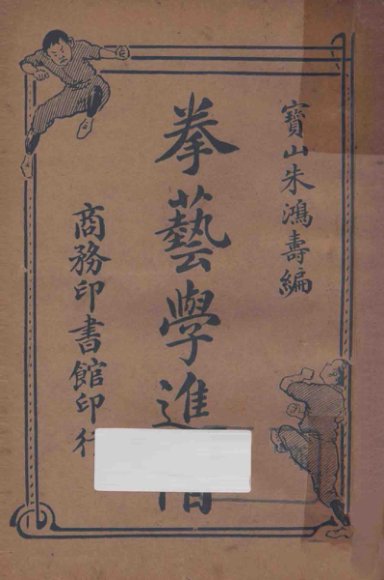 寶山朱鴻壽編
拳藝學進
商務印書館印行